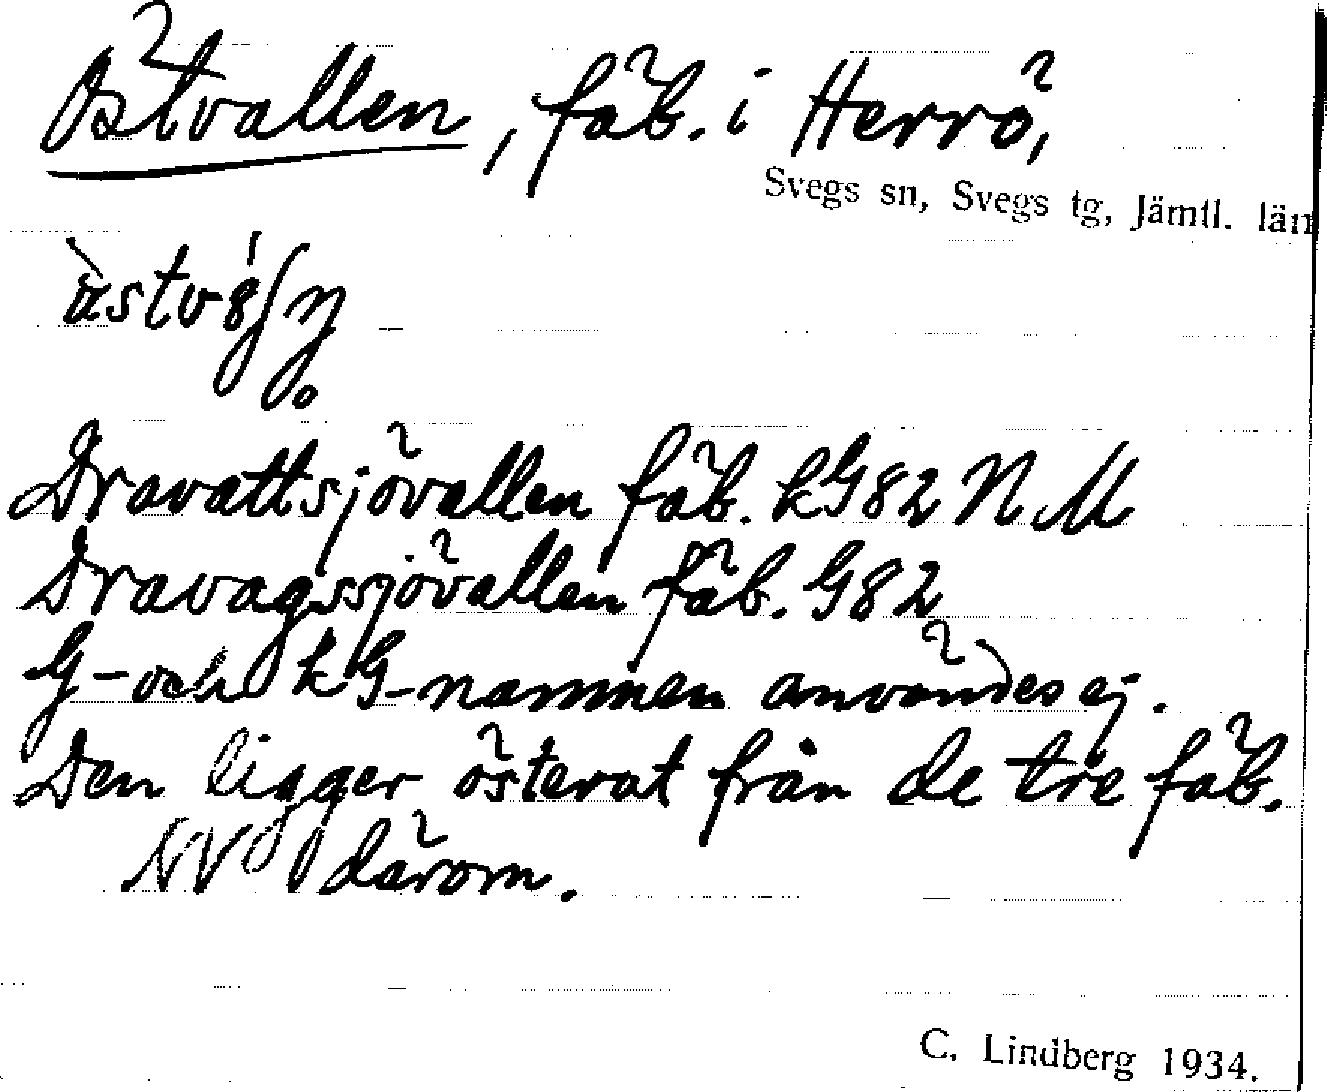 Östvallen, fäb. i Herrö,
Svegs sn, Svegs tg, Jämtl. län
Dravattsjövallen fäb. kG82 N M
Dravagssjövallen fäb. G82
G- och kG-namnen användes ej.
Den ligger österut från de tre fäb.
NV därom.
C. Lindberg 1934.